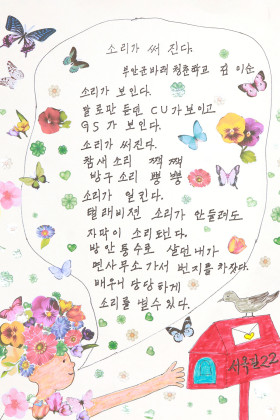 소리가 써 진다.
부안군바래 청춘학교 김 이순
소리가 보인다.
말로만 듣던 CU가 보이고
GS가 보인다.
소리가 써진다.
참새 소리 짹짹
방구 소리 뽕뽕
소리가 읽힌다.
텔래비젼 소리가 안들려도
자막이 소리 되다.
방안퉁수로 살던 내가
면사무소 가서 번지를 찾았다.
배우니 당당하게
소리를 낼수 있다.
서옥길22